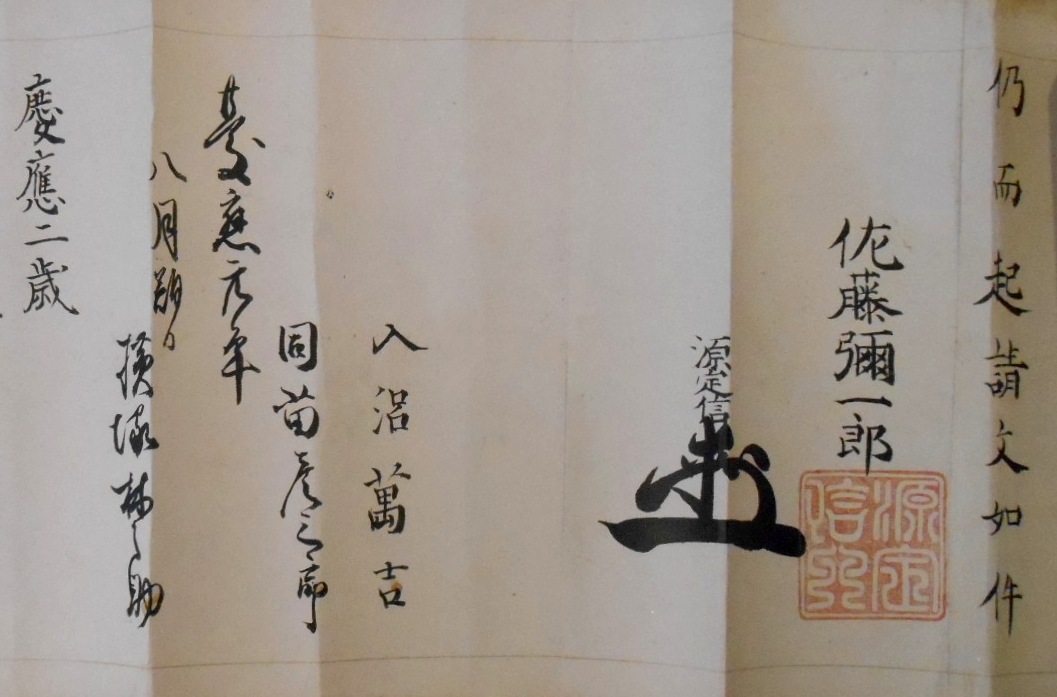 仍而起請文如件
佐藤彌一郎
源定信
源定信
入沼萬吉
同苗彦三郎
慶應元年
八月
横塚林之助
慶應二歳